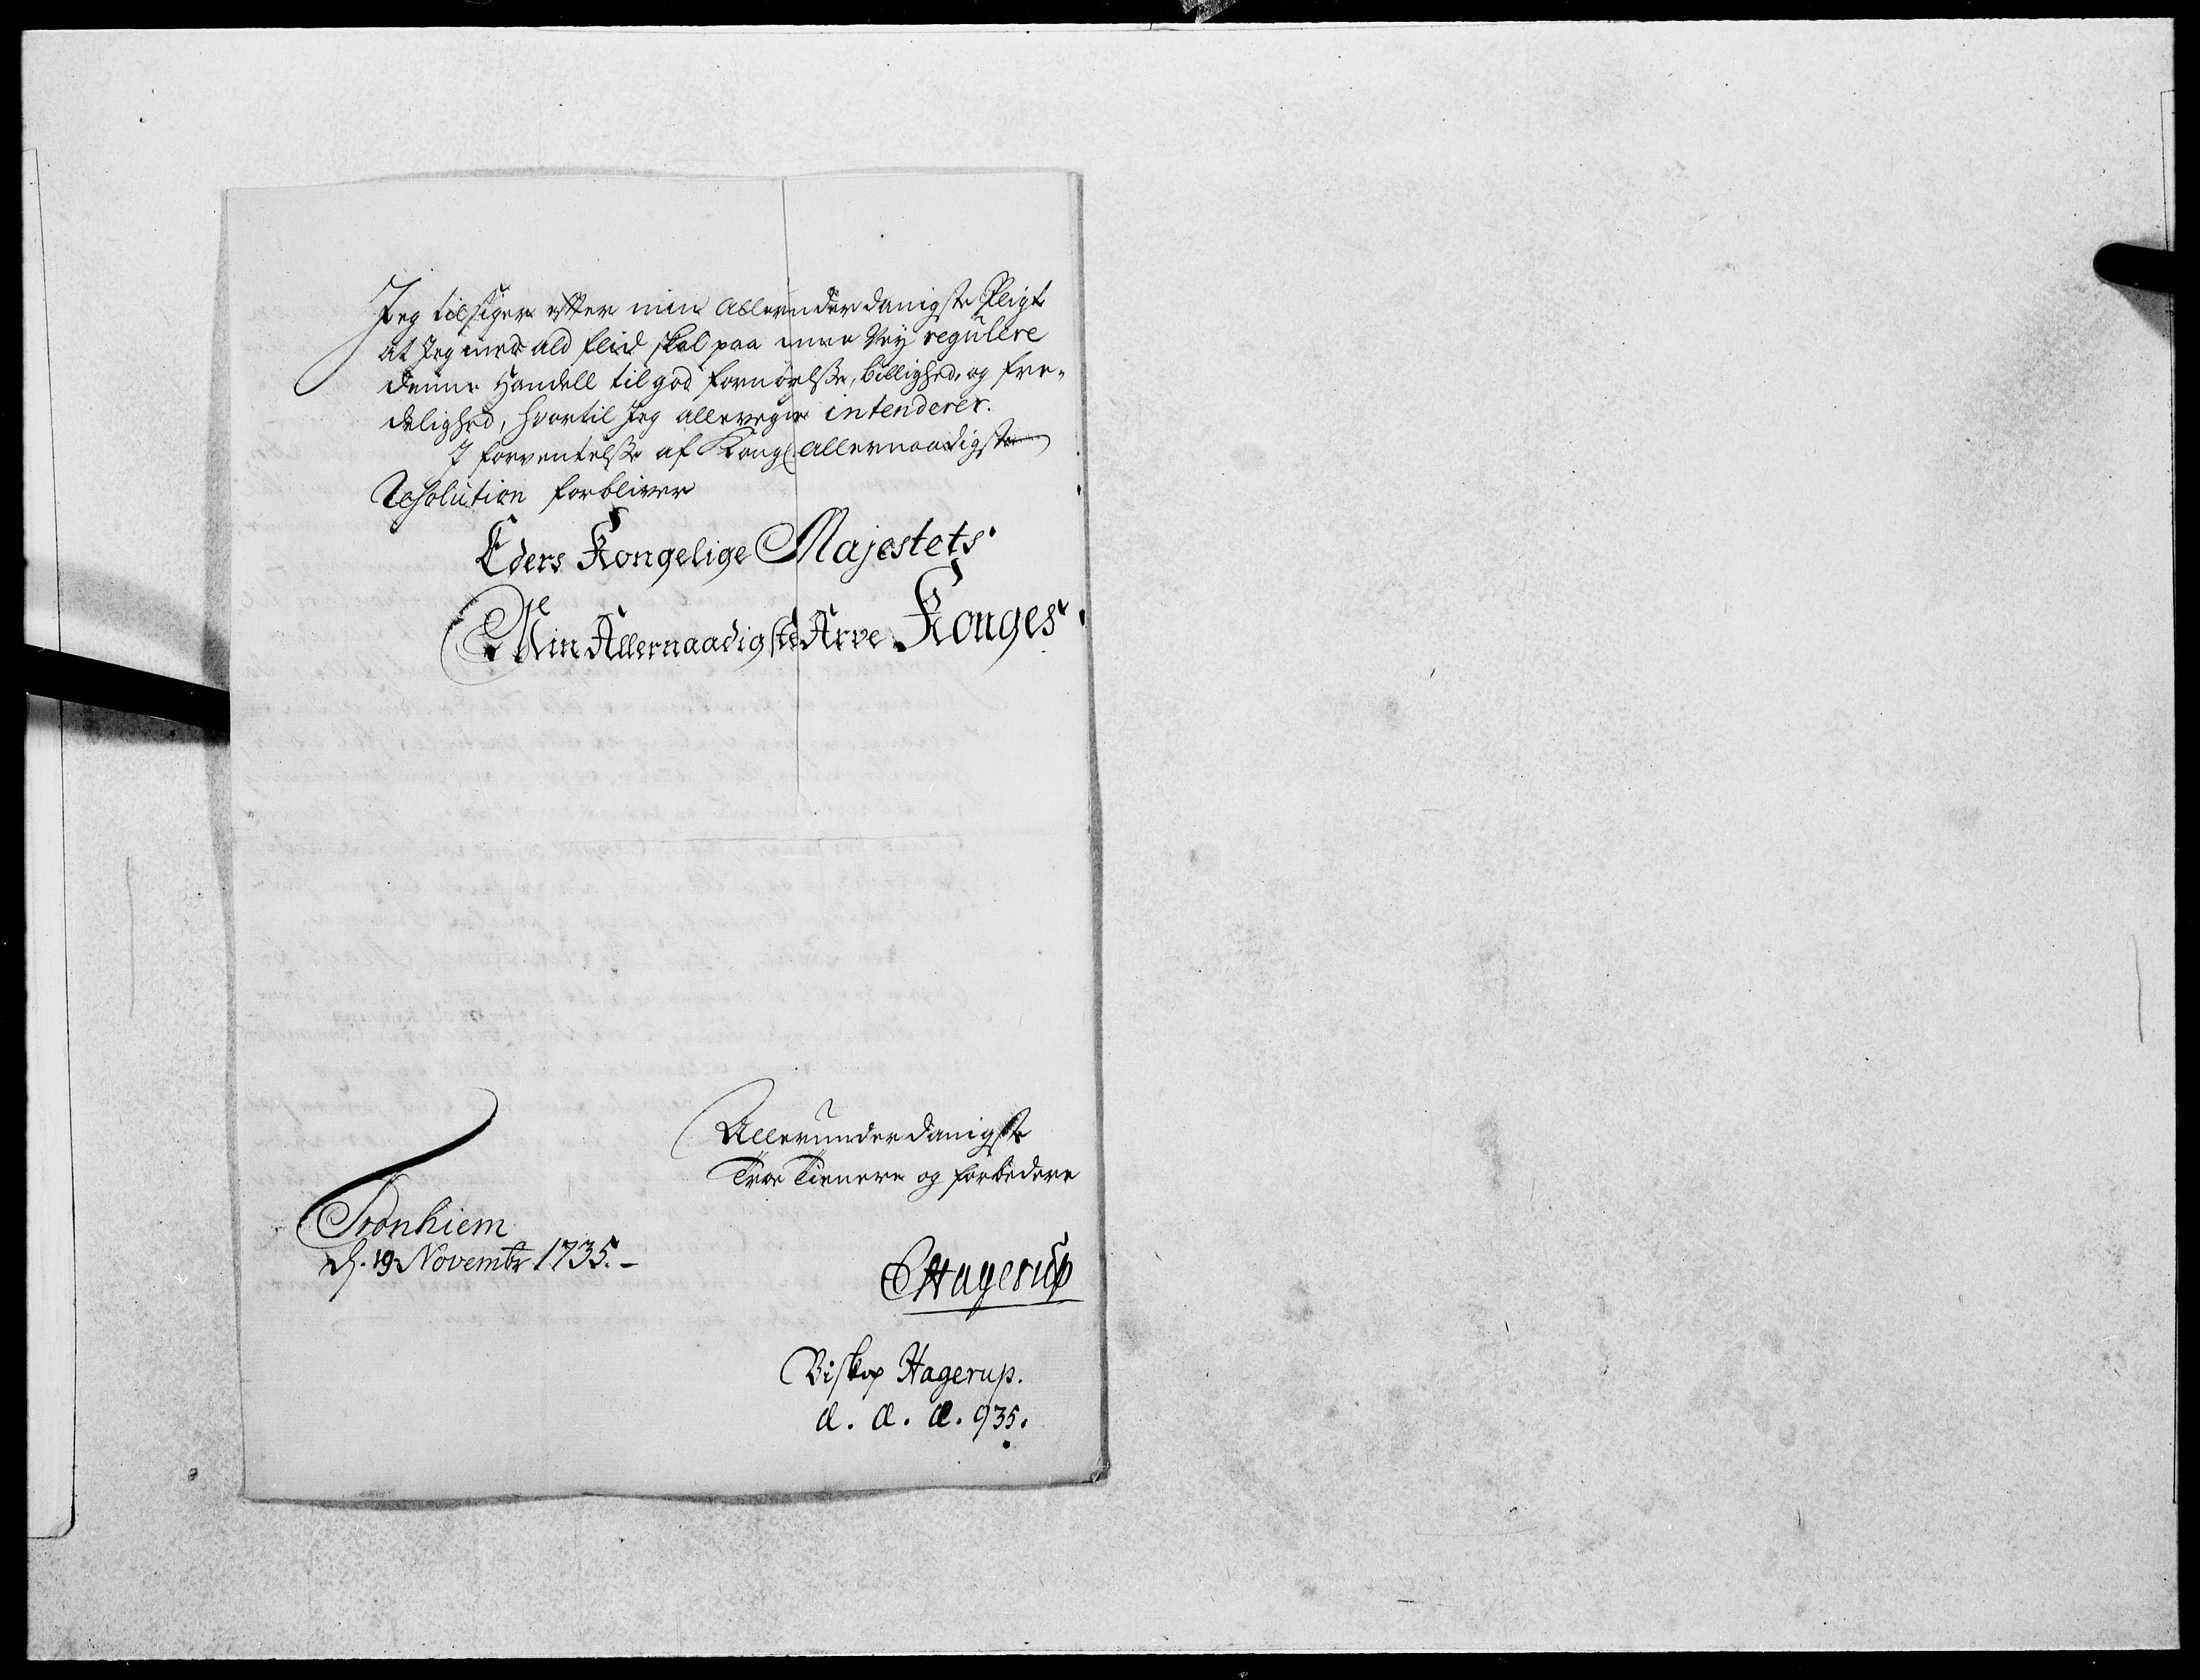 Jeg tilsiger efter min allerunderdanigste Pligt
at Jeg med ald fliid skal paa min Vey regulere
denne Handell til god fornøyelse, billighed, og fre-
delighed, hvortil Jeg allevegne intenderer.
I forventelse af Kongl. allernaadigste
Resolution forbliver
Eders Kongelige Majestets
Min Allernaadigste Arve Konges
Allerunderdanigste
Troe Tienere og forbedere
Tronhiem
d. 19 Novembr 1735.-
EHagerup
Biskop Hagerup.
a. a. a. 935.